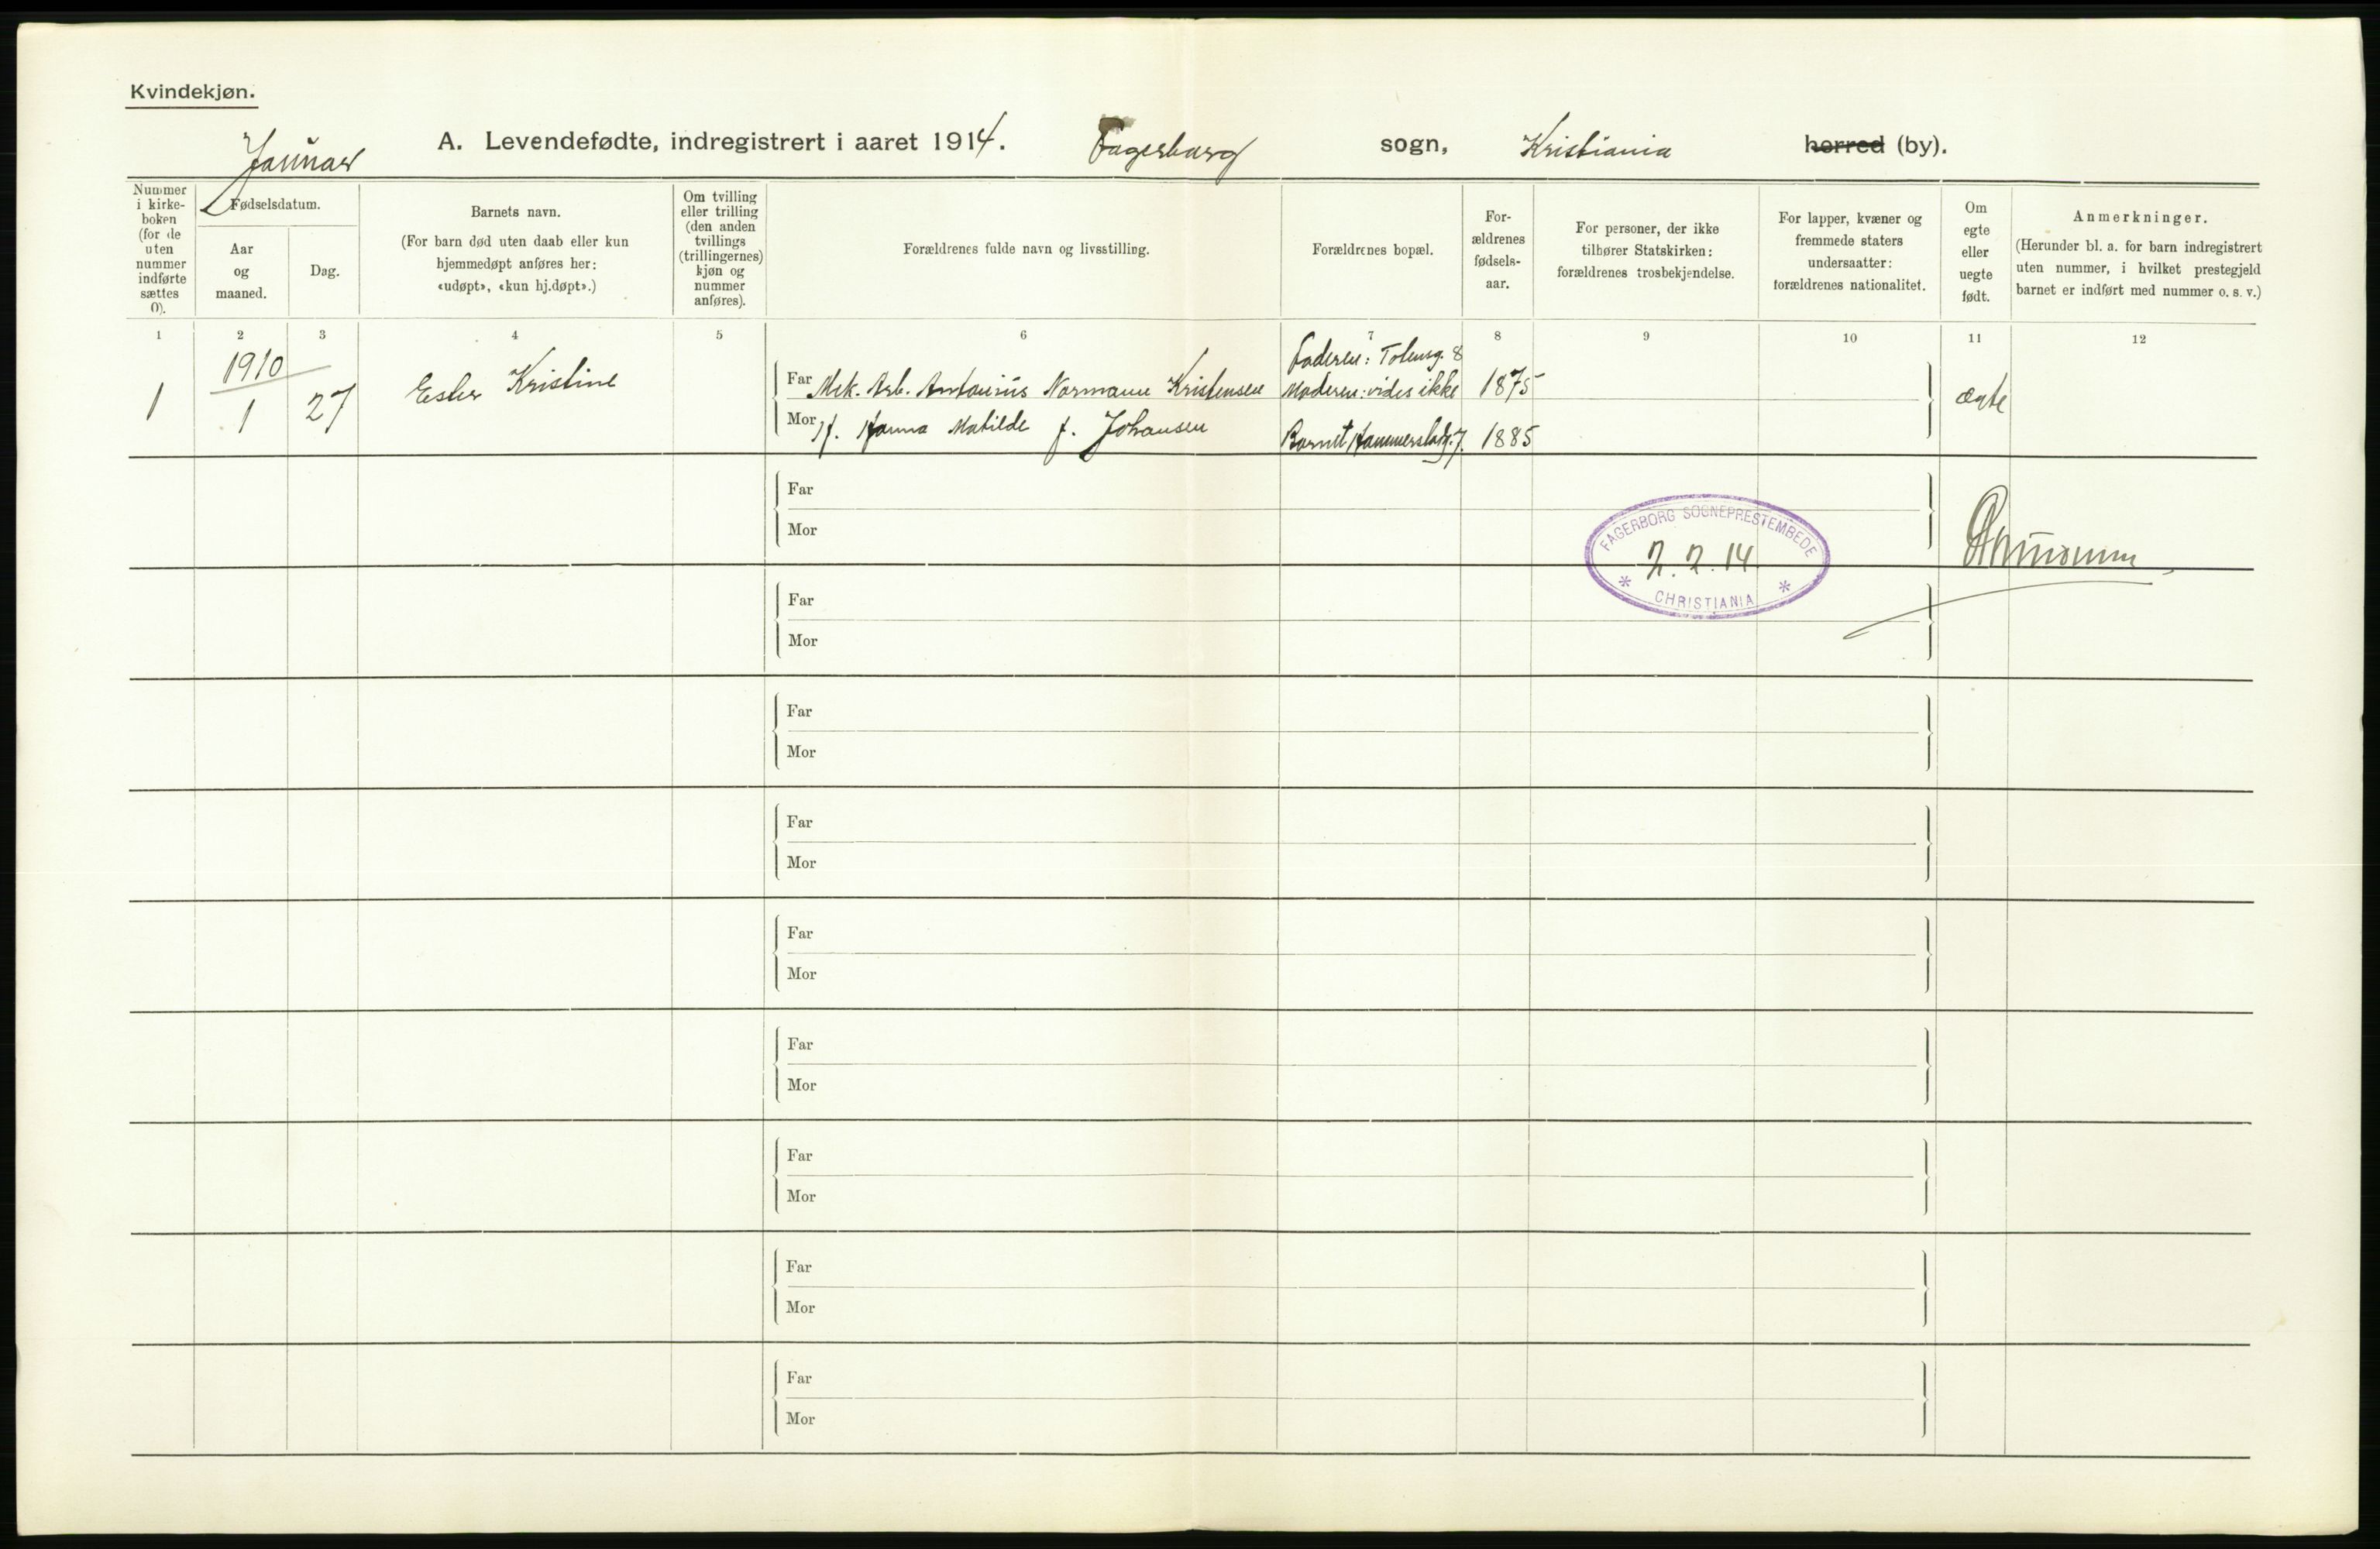 Kvindekjøn.
Januar
A. Levendefødte, indregistrert i aaret 1914. Fagerborg sogn, Kristiania herred (by).
Nummer
i kirke-
boken
(for de
uten
nummer
indførte
sættes
0).
Fødselsdatum.
Aar
og
maaned.
Dag.
Barnets navn.
(For barn død uten daab eller kun
hjemmedøpt anføres her:
«udøpt», «kun hj.døpt».)
Om tvilling
eller trilling
(den anden
tvillings
(trillingernes)
kjøn og
nummer
anføres).
Forældrenes fulde navn og livsstilling.
Forældrenes bopæl.
For-
ældrenes
fødsels-
aar.
For personer, der ikke
tilhører Statskirken:
forældrenes trosbekjendelse.
For lapper, kvæner og
fremmede staters
undersaatter:
forældrenes nationalitet.
Om
egte
eller
uegte
født.
Anmerkninger.
(Herunder bl. a. for barn indregistrert
uten nummer, i hvilket prestegjeld
barnet er indført med nummer o. s. v.)
1 2 3 4 5 6 7 8 9 10 11 12
1
1910
1
27
Ester Kristine
Far Mek. Arb. Antonius Normann Kristensen
Mor H. Hanna Matilde f. Johansen
Faderen: Toleusg. 8
Moderen: vides ikke
Barnet Hammerstadg. 7.
1875
1885
ægte
Far
Mor
FAGERBORG SOGNEPRESTEMBEDE
2. 2. 14.
* CHRISTIANIA *
Far
Mor
Far
Mor
Far
Mor
Far
Mor
Far
Mor
Far
Mor
Far
Mor
Far
Mor